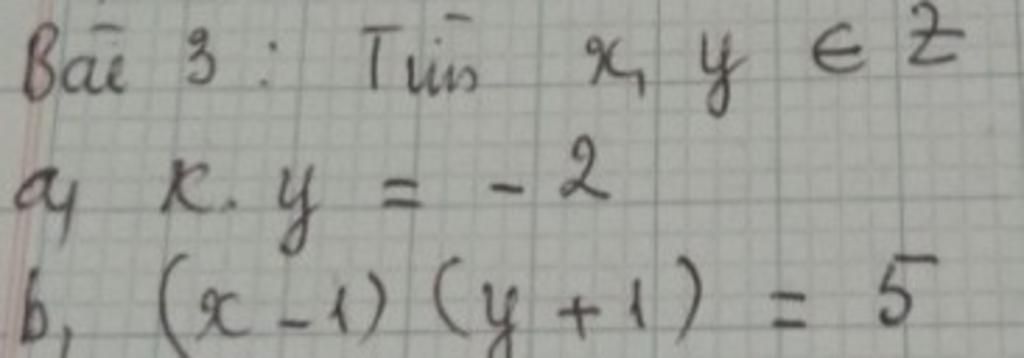 Bài 3 : Tìm x, y ∈ Z
a, x . y = - 2
b, (x - 1) (y + 1) = 5